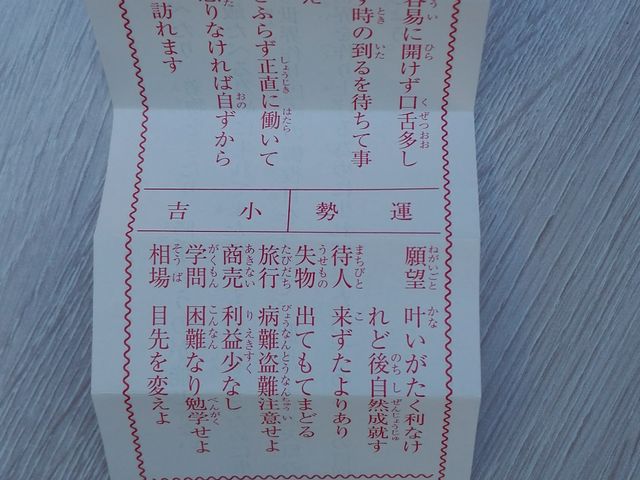 容易に開けず口舌多し
時の到るを待ちて事
ふらず正直に働いて
りなければ自ずから
訪れます
運勢
小吉
願望 叶いがたく利なけ
れど後自然成就す
待人 来ずたよりあり
失物 出てもてまどる
旅行 病難盗難注意せよ
商売 利益少なし
学問 困難なり勉学せよ
相場 目先を変えよ